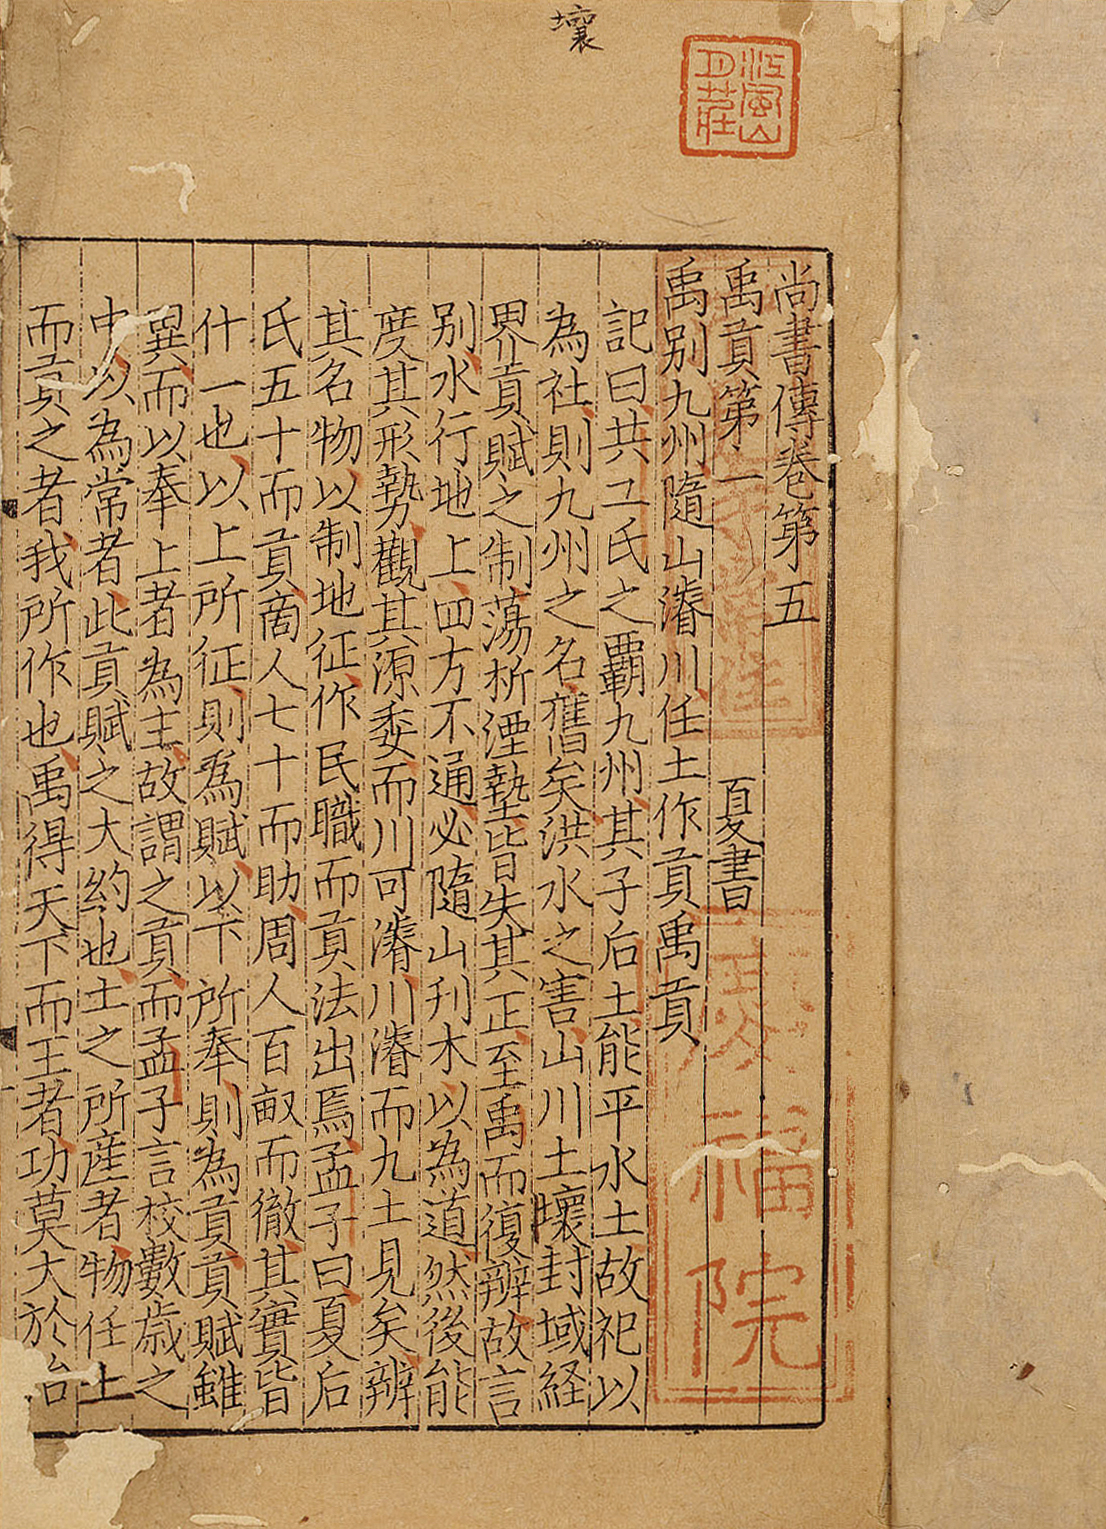 壞
江風山
月莊
尚書傳卷第五
禹貢第一 夏書
禹別九州隨山濬川任土作貢禹貢
記曰共工氏之覇九州其子后土能平水土故祀以
為社則九州之名舊矣洪水之害山川土壤封域経
界貢賦之制蕩析湮墊皆失其正至禹而復辨故言
別水行地上四方不通必隨山刋木以為道然後能
度其形勢觀其源委而川可濬川濬而九土見矣辨
其名物以制地征作民職而貢法出焉孟子曰夏后
氏五十而貢商人七十而助周人百畝而徹其實皆
什一也以上所征則爲賦以下所奉則為貢貢賦雖
異而以奉上者為主故謂之貢而孟子言校數歳之
中以為常者此貢賦之大約也土之所産者物任土
而貢之者我所作也禹得天下而王者功莫大於治
福
院